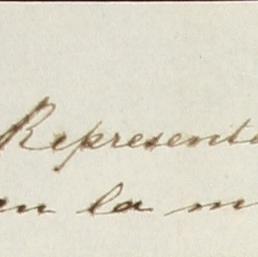 Representa
en la m